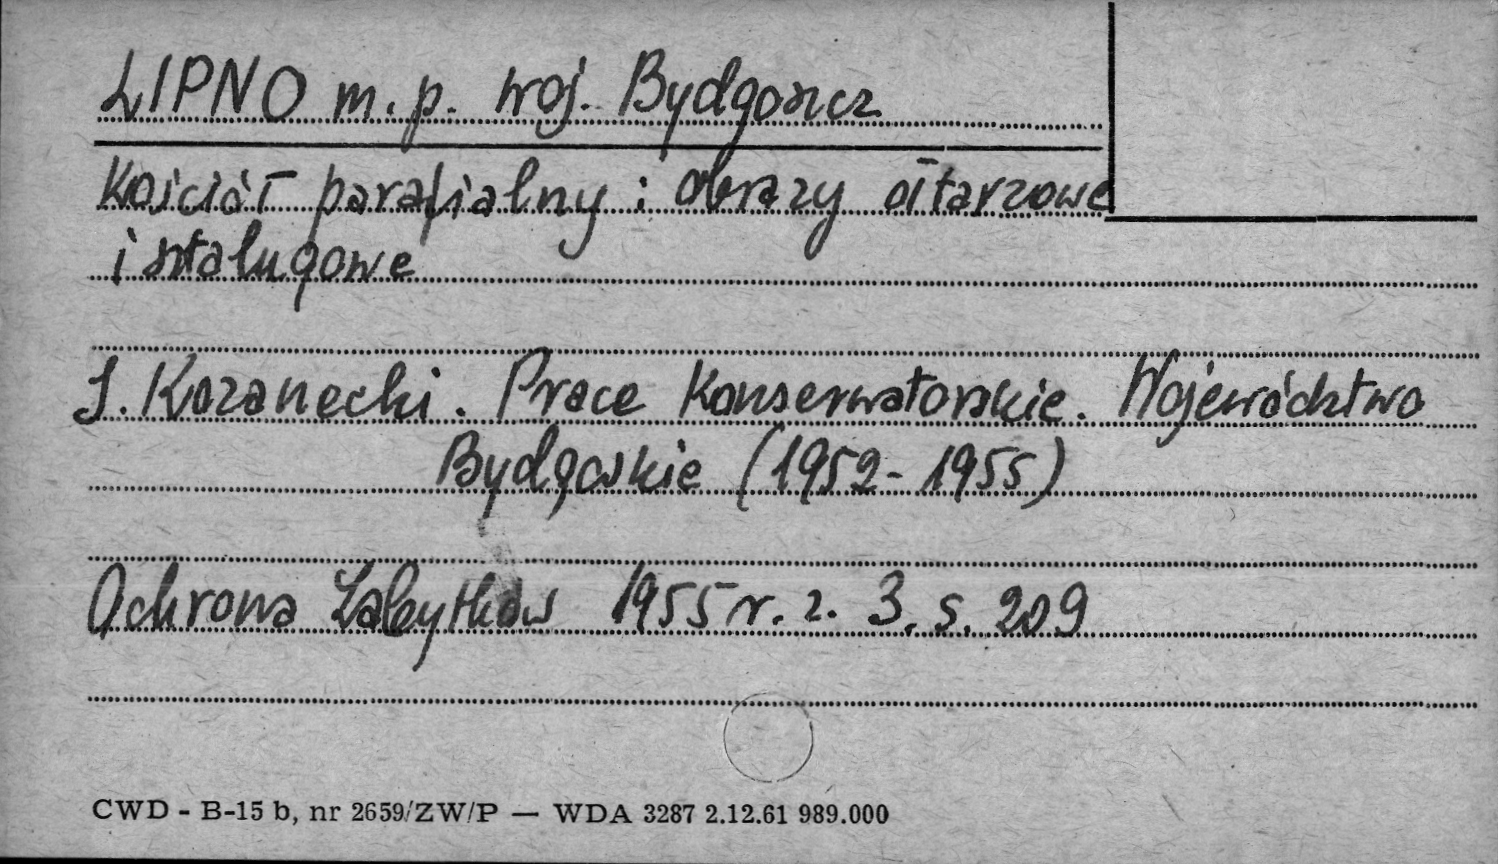 LIPNO m.p. woj. Bydgoszcz
Kościół parafialny : obrazy ołtarzowe
i sztalugowe
J. Kozanecki. Prace Konserwatorskie. Województwo
Bydgoskie (1952-1955)
Ochrona Zabytków 1955 r. z. 3. s. 209
CWD - B-15 b, nr 2659/ZW/P — WDA 3287 2.12.61 989.000